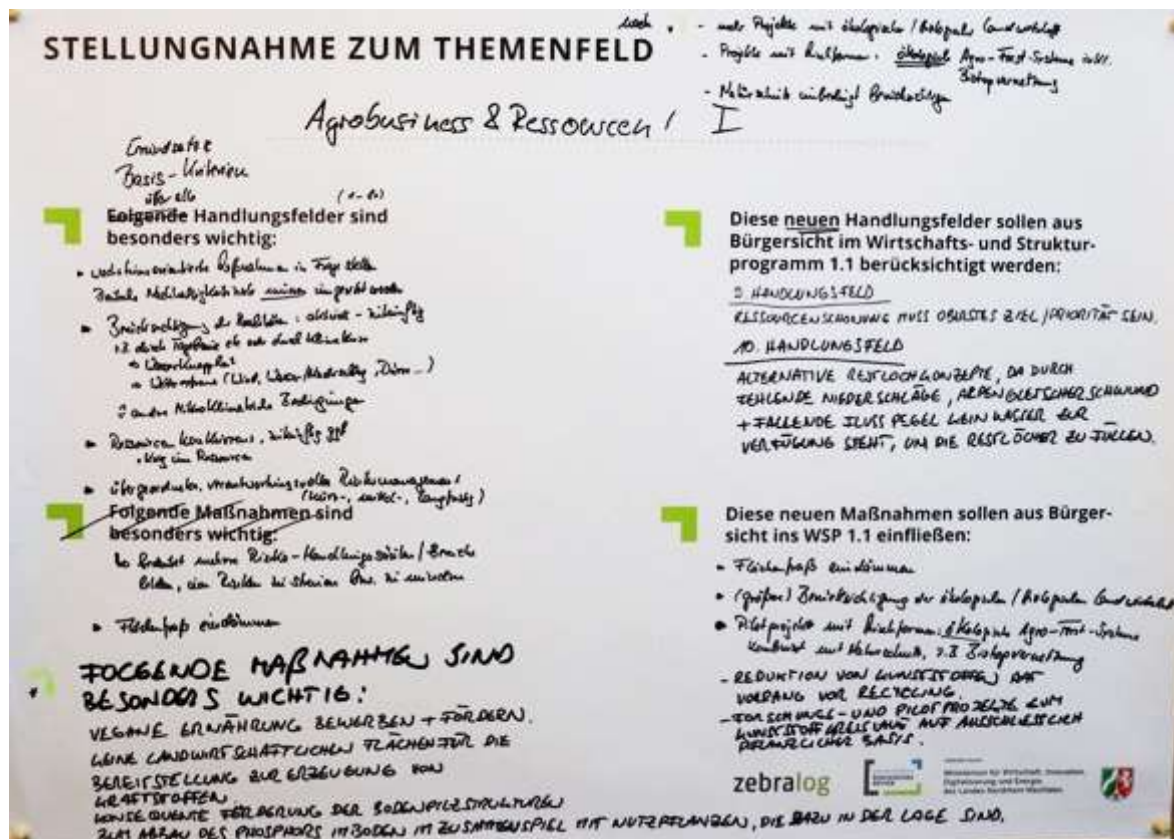 noch
- mehr Projekte mit ökologischer / biologischer Landwirtschaft
- Projekte mit ökologisch Agro-Forst-Systeme inkl.
Biotopvernetzung
- Naturschutz unbedingt berücksichtigen
STELLUNGNAHME ZUM THEMENFELD
Agrobusiness & Ressourcen / I
Grundsätze
Basis-Kriterien
über alle
Folgende Handlungsfelder sind
besonders wichtig:
• Maßnahmen in Frage stellen
Nachhaltigkeit
• Berücksichtigung der Realitäten: aktuell - zukünftig
z.B. durch Tagebaue als auch durch Klimakrise
⇒ Wasserknappheit
⇒ Wetterextreme (Wind, Wasser, Dürre ...)
andere Mikroklimatische Bedingungen
• Ressourcen Konkurrenz, zukünftig ggf.
. Krieg um Ressourcen
• übergeordnetes, verantwortungsvolles Risikomanagement
(kurz-, mittel-, langfristig)
Folgende Maßnahmen sind
besonders wichtig:
↳ bedeutet mehrere Risiko-Handlungs
• Flächenfraß eindämmen
FOLGENDE MAßNAHMEN SIND
BESONDERS WICHTIG:
VEGANE ERNÄHRUNG BEWERBEN + FÖRDERN.
KEINE LANDWIRTSCHAFTLICHEN FLÄCHEN FÜR DIE
BEREITSTELLUNG ZUR ERZEUGUNG VON
KRAFTSTOFFEN.
KONSEQUENTE FÖRDERUNG DER BODENPILZSTRUKTUREN
ZUM ABBAU DES PHOSPHORS IM BODEN IM ZUSAMMENSPIEL MIT NUTZPFLANZEN, DIE DAZU IN DER LAGE SIND.
Diese neuen Handlungsfelder sollen aus
Bürgersicht im Wirtschafts- und Struktur-
programm 1.1 berücksichtigt werden:
9. HANDLUNGSFELD
RESSOURCENSCHONUNG MUSS OBERSTES ZIEL/PRIORITÄT SEIN.
10. HANDLUNGSFELD
ALTERNATIVE RESTLOCHKONZEPTE, DA DURCH
FEHLENDE NIEDERSCHLÄGE, ALPENGLETSCHERSCHWUND
+ FALLENDE FLUSSPEGEL KEIN WASSER ZUR
VERFÜGUNG STEHT, UM DIE RESTLÖCHER ZU FÜLLEN.
Diese neuen Maßnahmen sollen aus Bürger-
sicht ins WSP 1.1 einfließen:
• Flächenfraß eindämmen
• (größere) Berücksichtigung der ökologischen / biologischen Landwirtschaft
• Pilotprojekte mit ökologisch Agro-Forst-Systeme
kombiniert mit Naturschutz, z.B. Biotopvernetzung
- REDUKTION VON KUNSTSTOFFEN HAT
VORRANG VOR RECYCLING.
- FORSCHUNGS- UND PILOTPROJEKTE ZUM
KUNSTSTOFFKREISLAUF AUF AUSSCHLIESSLICH
PFLANZLICHER BASIS.
zebralog
Ministerium für Wirtschaft, Innovation,
Digitalisierung und Energie
des Landes Nordrhein-Westfalen